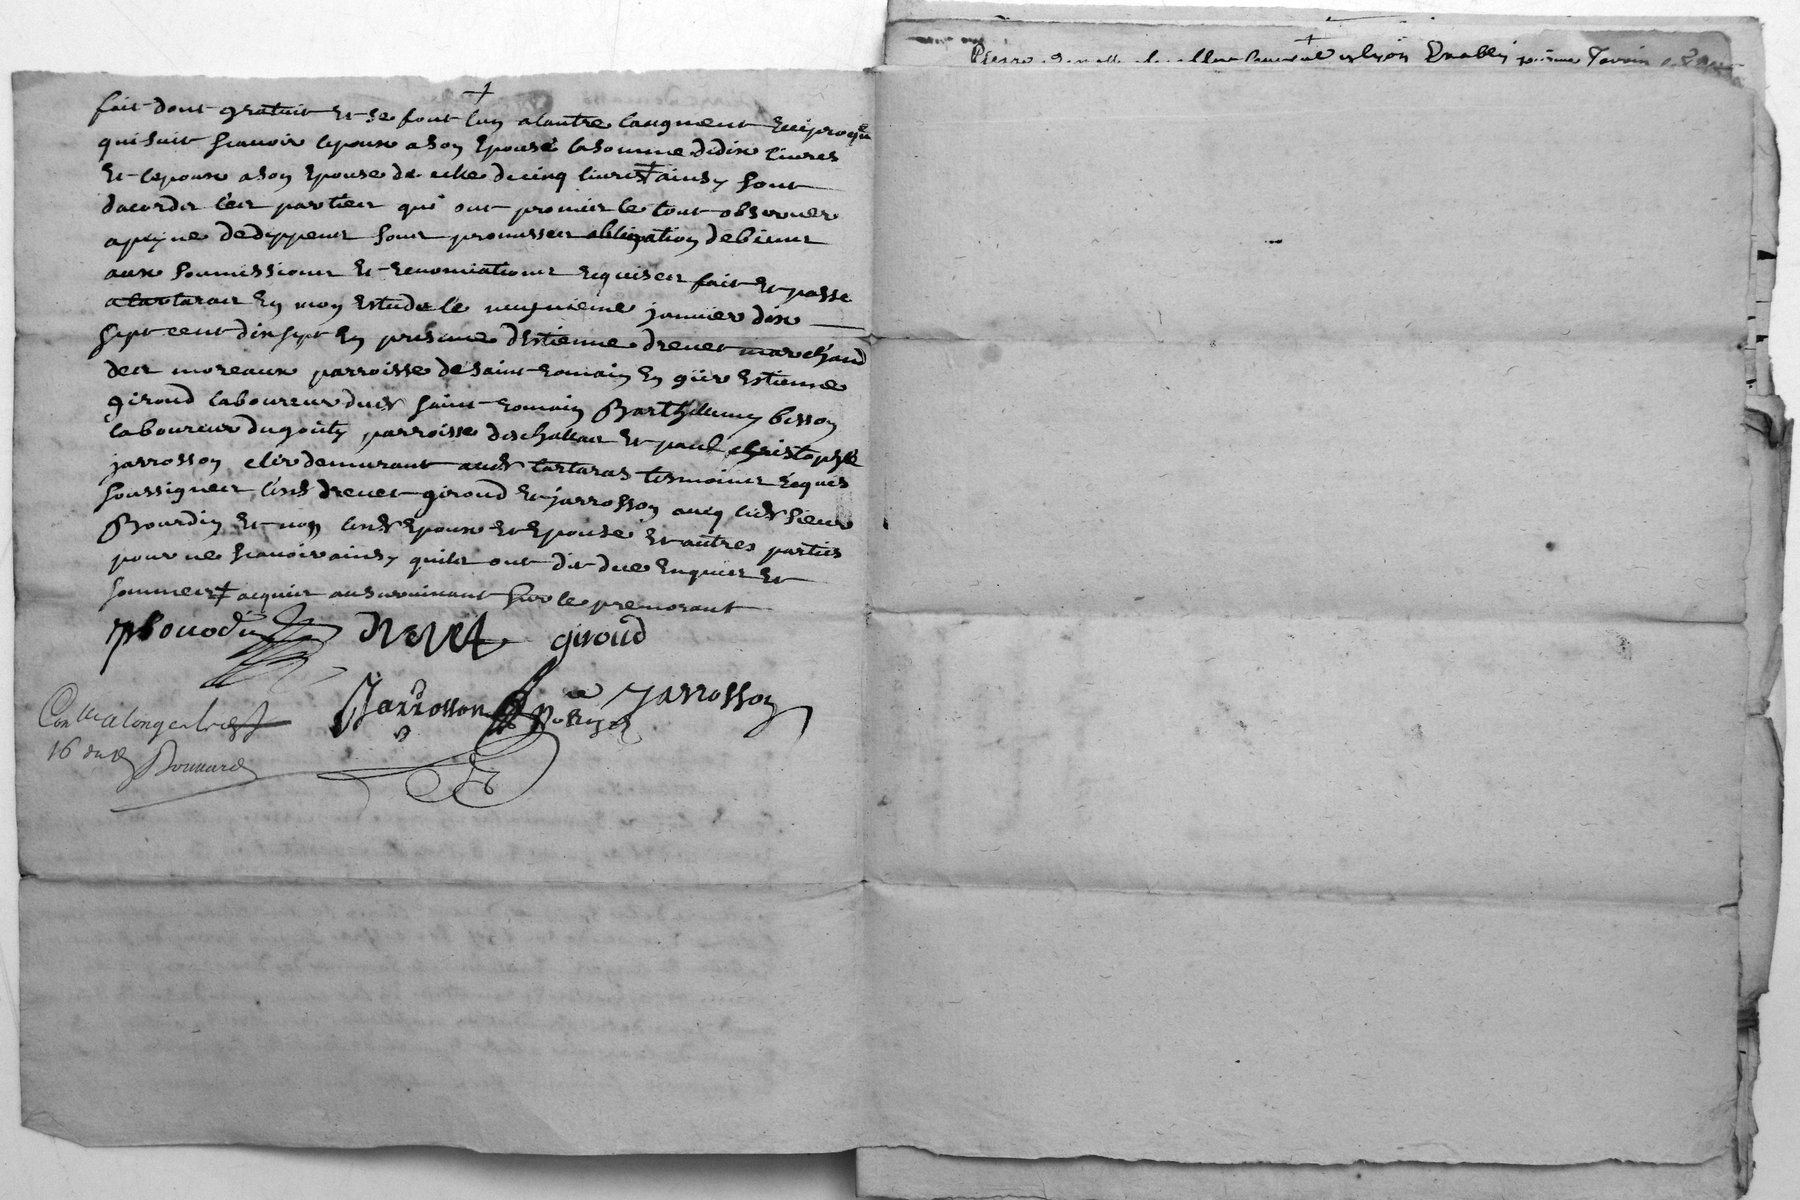 fait dont gratuit et se font lun a lautre laugment reciproque
qui suit scavoir lepoux a son Epouse la somme de dix livres
Et lepouse a son Epouse de celle de cinq livres + ainsy sont
dacorder les parties qui ont promier le tout observer
a peyne de deppens sous promesser obligation de biens
aux soumissions et renontiations requiser fait et passe
a tartaras En mon estude le neufvieme janvier dix
sept cent dix sept En presence d'Estienne drevet marchand
des moreaux parroisse de saint romain En gier Estienne
giroud laboureur dud saint romain Barthellemy besson
laboureur du parroisse deschallas et paul christophle
jarrosson clerc demurant aud tartaras tesmoins requis
soussigner lesd drevet giroud et jarrosson avecq led sieur
Bourdin et non lesd Epoux et Epouse et autres parties
pour ne scavoir ainsy quils ont dit de ce Enquier et
sommer + acquier au survivant sur le premorant
Bourdin drevet giroud
Jarrosson Jarrosson
Con.lle a longes le
16 dud Bonnard
Pierre